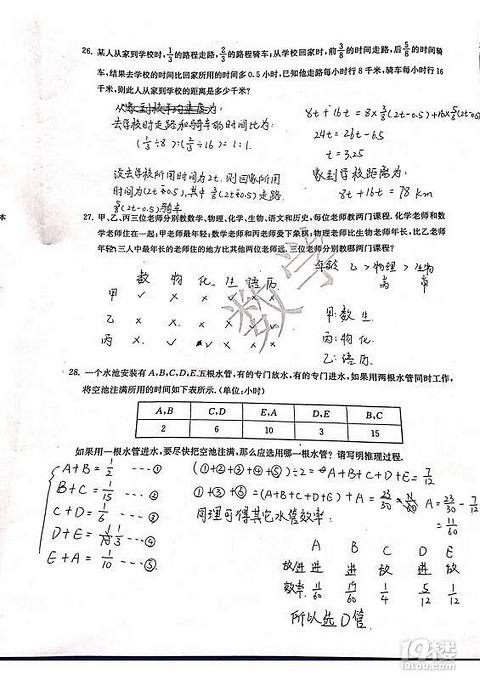 26. 某人从家到学校时,1/3的路程走路,2/3的路程骑车;从学校回家时,前3/8的时间走路,后5/8的时间骑
车,结果去学校的时间比回家所用的时间多0.5小时,已知他走路每小时行8千米,骑车每小时行16
千米,则此人从家到学校的距离是多少千米?
去学校时走路和骑车的时间比为:
(1/3÷8):(2/3÷16)=1:1.
设去学校所用时间为2t.则回家所用
时间为(2t-0.5),其中3/8(2t-0.5)走路
5/8(2t-0.5)骑车
8t+16t=8×3/8(2t-0.5)+16×5/8(2t-0.5)
24t=26t-6.5
t=3.25
家到学校距离为:
8t+16t=78km
本
27. 甲、乙、丙三位老师分别教数学、物理、化学、生物、语文和历史,每位老师教两门课程.化学老师和数
学老师住在一起;甲老师最年轻;数学老师和丙老师爱下象棋;物理老师比生物老师年长,比乙老师
年轻;三人中最年长的老师住的地方比其他两位老师远.三位老师分别教哪两门课程?
年龄 乙>物理>生物
丙 甲
数 物 化 生 语 历
甲 ✓ × × ✓ × ×
乙 × × × × ✓ ✓
丙 × ✓ ✓ × × ×
甲:数 生
丙:物 化
乙:语 历
数学
28. 一个水池安装有A,B,C,D,E五根水管,有的专门放水,有的专门进水,如果用两根水管同时工作,
将空池注满所用的时间如下表所示.(单位:小时)
A,B C,D E,A D,E B,C
2 6 10 3 15
如果用一根水管进水,要尽快把空池注满,那么应选用哪一根水管?请写明推理过程.
A+B=1/2 ---①
B+C=1/15 ---②
C+D=1/6 ---③
D+E=1/3 ---④
E+A=1/10 ---⑤
(①+②+③+④+⑤)÷2=A+B+C+D+E=7/12
①+③+⑥=(A+B+C+D+E)+A=23/30 A=23/30-7/12
=11/60
同理可得其它水管效率:
A B C D E
放进 进 进 放 进 进
效率 11/60 19/60 1/4 5/12 1/12
所以选D管.
19楼
19lou.com